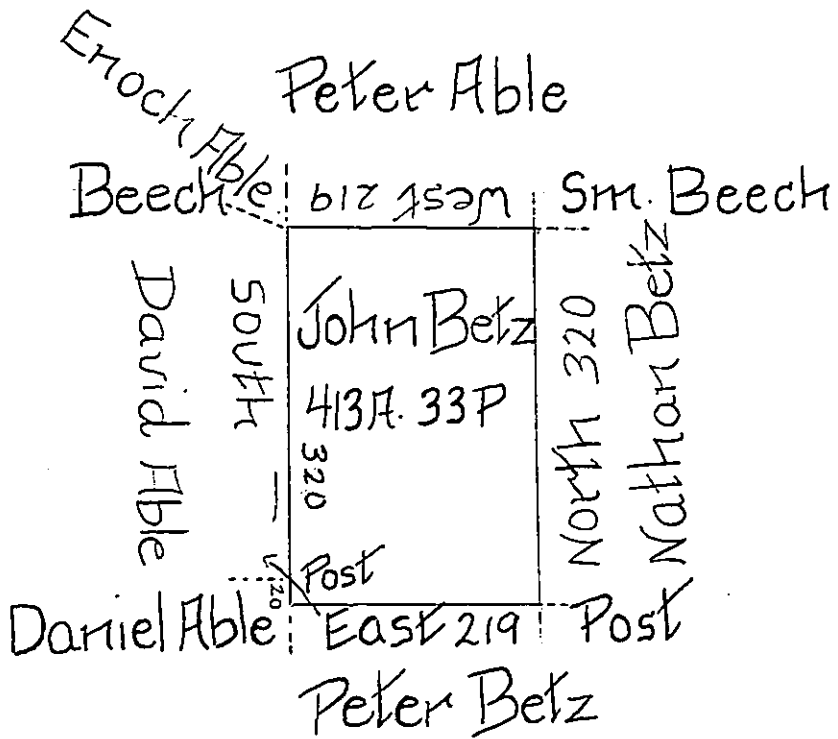 Enoch Able
Peter Able
Beech
West 219
Sm. Beech
David Able
South
320
John Betz
413A. 33P
North 320
Nathan Betz
Post
20
Daniel Able
East 219
Post
Peter Betz